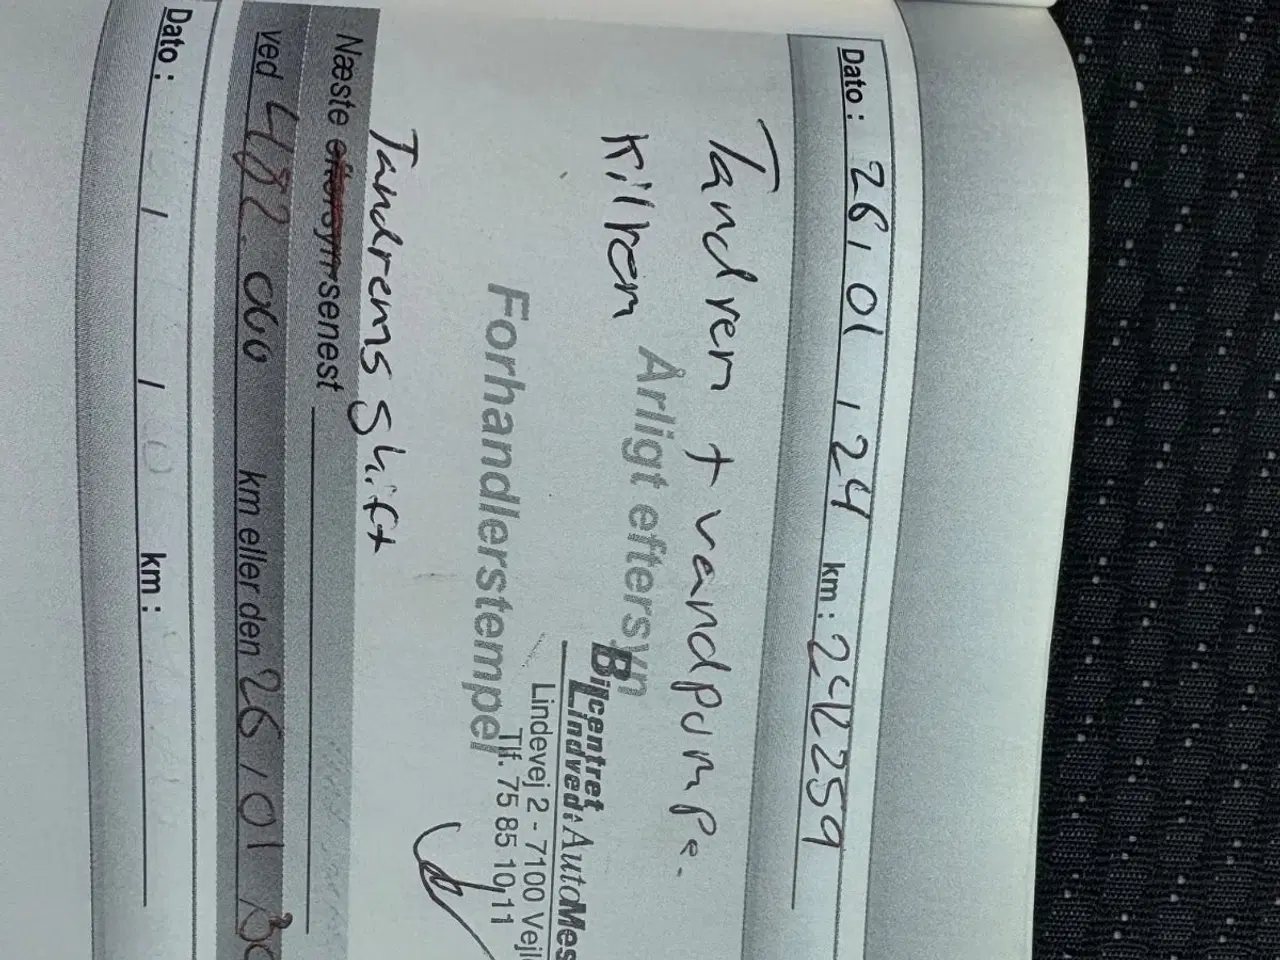 Dato: 26,01,24 km: 242259
Tandrem + vandpumpe.
Kilrem
Årligt eftersyn
Bilcentret
Lindved: AutoMes
Lindevej 2 - 7100 Vejl
Tlf. 75 85 10 11
Forhandlerstempel
Tandrems skift
Næste eftersyn senest
ved 482.000 km eller den 26,01
Dato: / / km: